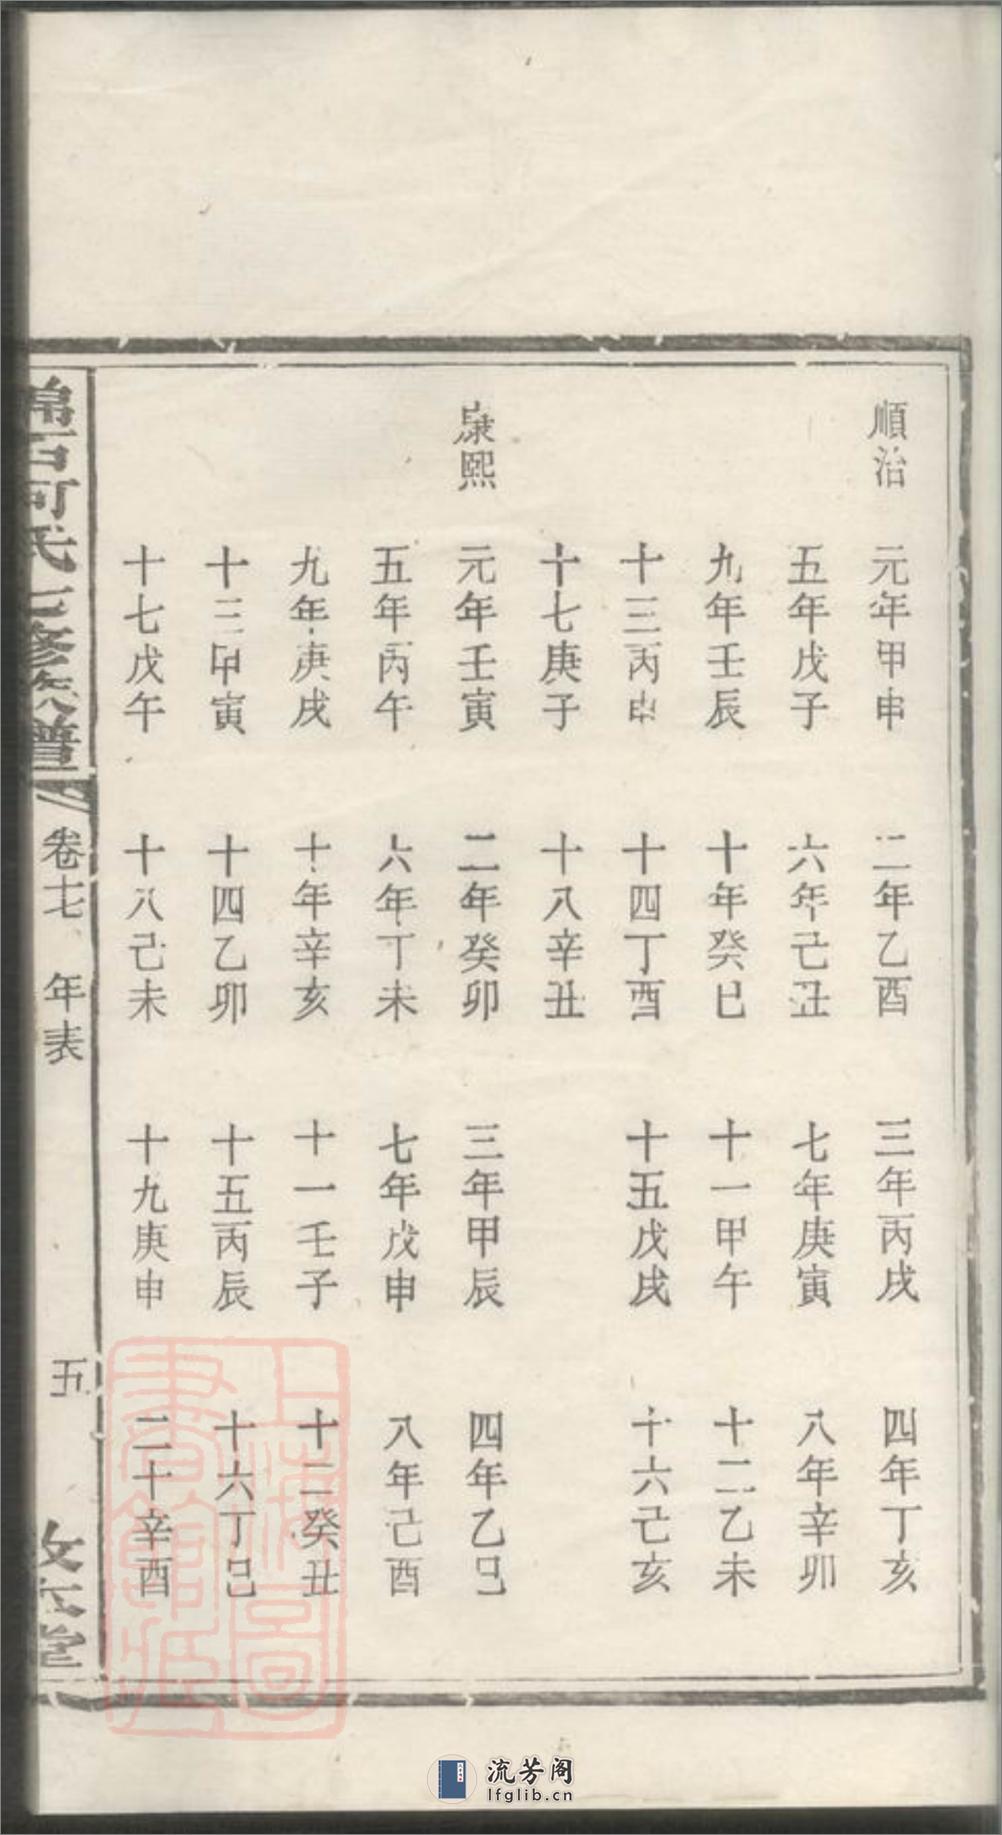 順治 元年甲申 二年乙酉 三年丙戌 四年丁亥
五年戊子 六年己丑 七年庚寅 八年辛卯
九年壬辰 十年癸巳 十一甲午 十二乙未
十三丙申 十四丁酉 十五戊戌 十六己亥
十七庚子 十八辛丑
康熙 元年壬寅 二年癸卯 三年甲辰 四年乙巳
五年丙午 六年丁未 七年戊申 八年己酉
九年庚戌 十年辛亥 十一壬子 十二癸丑
十三甲寅 十四乙卯 十五丙辰 十六丁巳
十七戊午 十八己未 十九庚申 二十辛酉
錦石何氏七修族譜 卷七 年表 五 敦五堂
上海圖書館藏
流芳阁
lfglib.cn